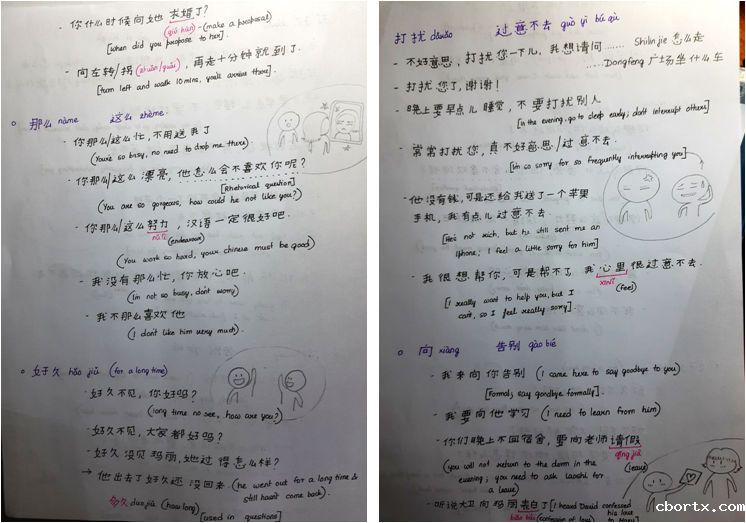 - 你什么时候向她求婚了?
(qiú hūn) - (make a proposal)
[when did you propose to her].
- 向左转/拐 (zhuǎn/guǎi), 再走十分钟就到了.
[turn left and walk 10 mins, you'll arrive there].
那么 nàme 这么 zhème.
- 你那么/这么忙, 不用送我了
(You're so busy, no need to drop me there)
- 你那么/这么 漂亮, 他怎么会不喜欢你呢?
[Rhetorical question]
(You are so gorgeous, how could he not like you?)
- 你那么/这么努力, 汉语一定很好吧.
nǔlì (endeavour)
(You work so hard, your chinese must be good)
- 我没有那么忙, 你放心吧.
(Im not so busy, don't worry)
- 我不那么喜欢他
(I don't like him very much).
好久 hǎo jiǔ (for a long time)
- 好久不见, 你好吗?
(long time no see, how are you?)
- 好久不见, 大家都好吗?
- 好久没见玛丽, 她过得怎么样?
→ 他出去了好久还没回来 (he went out for a long time &
still hasn't come back).
多久 duō jiǔ (how long)
[used in questions]
打扰 dǎrǎo 过意不去 guò yì bú qù
- 不好意思, 打扰您一下儿, 我想请问 ...... Shilinjie 怎么走
...... Dongfeng 广场坐什么车
- 打扰您了, 谢谢!
- 晚上要早点儿睡觉, 不要打扰别人
[in the evening, go to sleep early; don't interrupt others]
- 常常打扰您, 真不好意思/过意不去.
[Im so sorry for so frequently interrupting you]
- 他没有钱, 可是还给我送了一个苹果
手机, 我有点儿过意不去.
[He's not rich, but he still sent me an
Iphone; I feel a little sorry for him]
- 我很想帮你, 可是帮不了, 我心里很过意不去.
xīnlǐ (feel)
[I really want to help you, but I
can't, so I feel really sorry].
向 xiàng 告别 gào bié
- 我来向你告别 (I came here to say goodbye to you)
[Formal; say goodbye formally].
- 我要向他学习 (I need to learn from him)
- 你们晚上不回宿舍, 要向老师请假
qǐng jià
(you will not return to the dorm in the (leave)
evening; you need to ask laoshi for
a leave)
- 听说大卫向玛丽表白了 [I heard David confessed
his love
to Mary]
cbortx.com